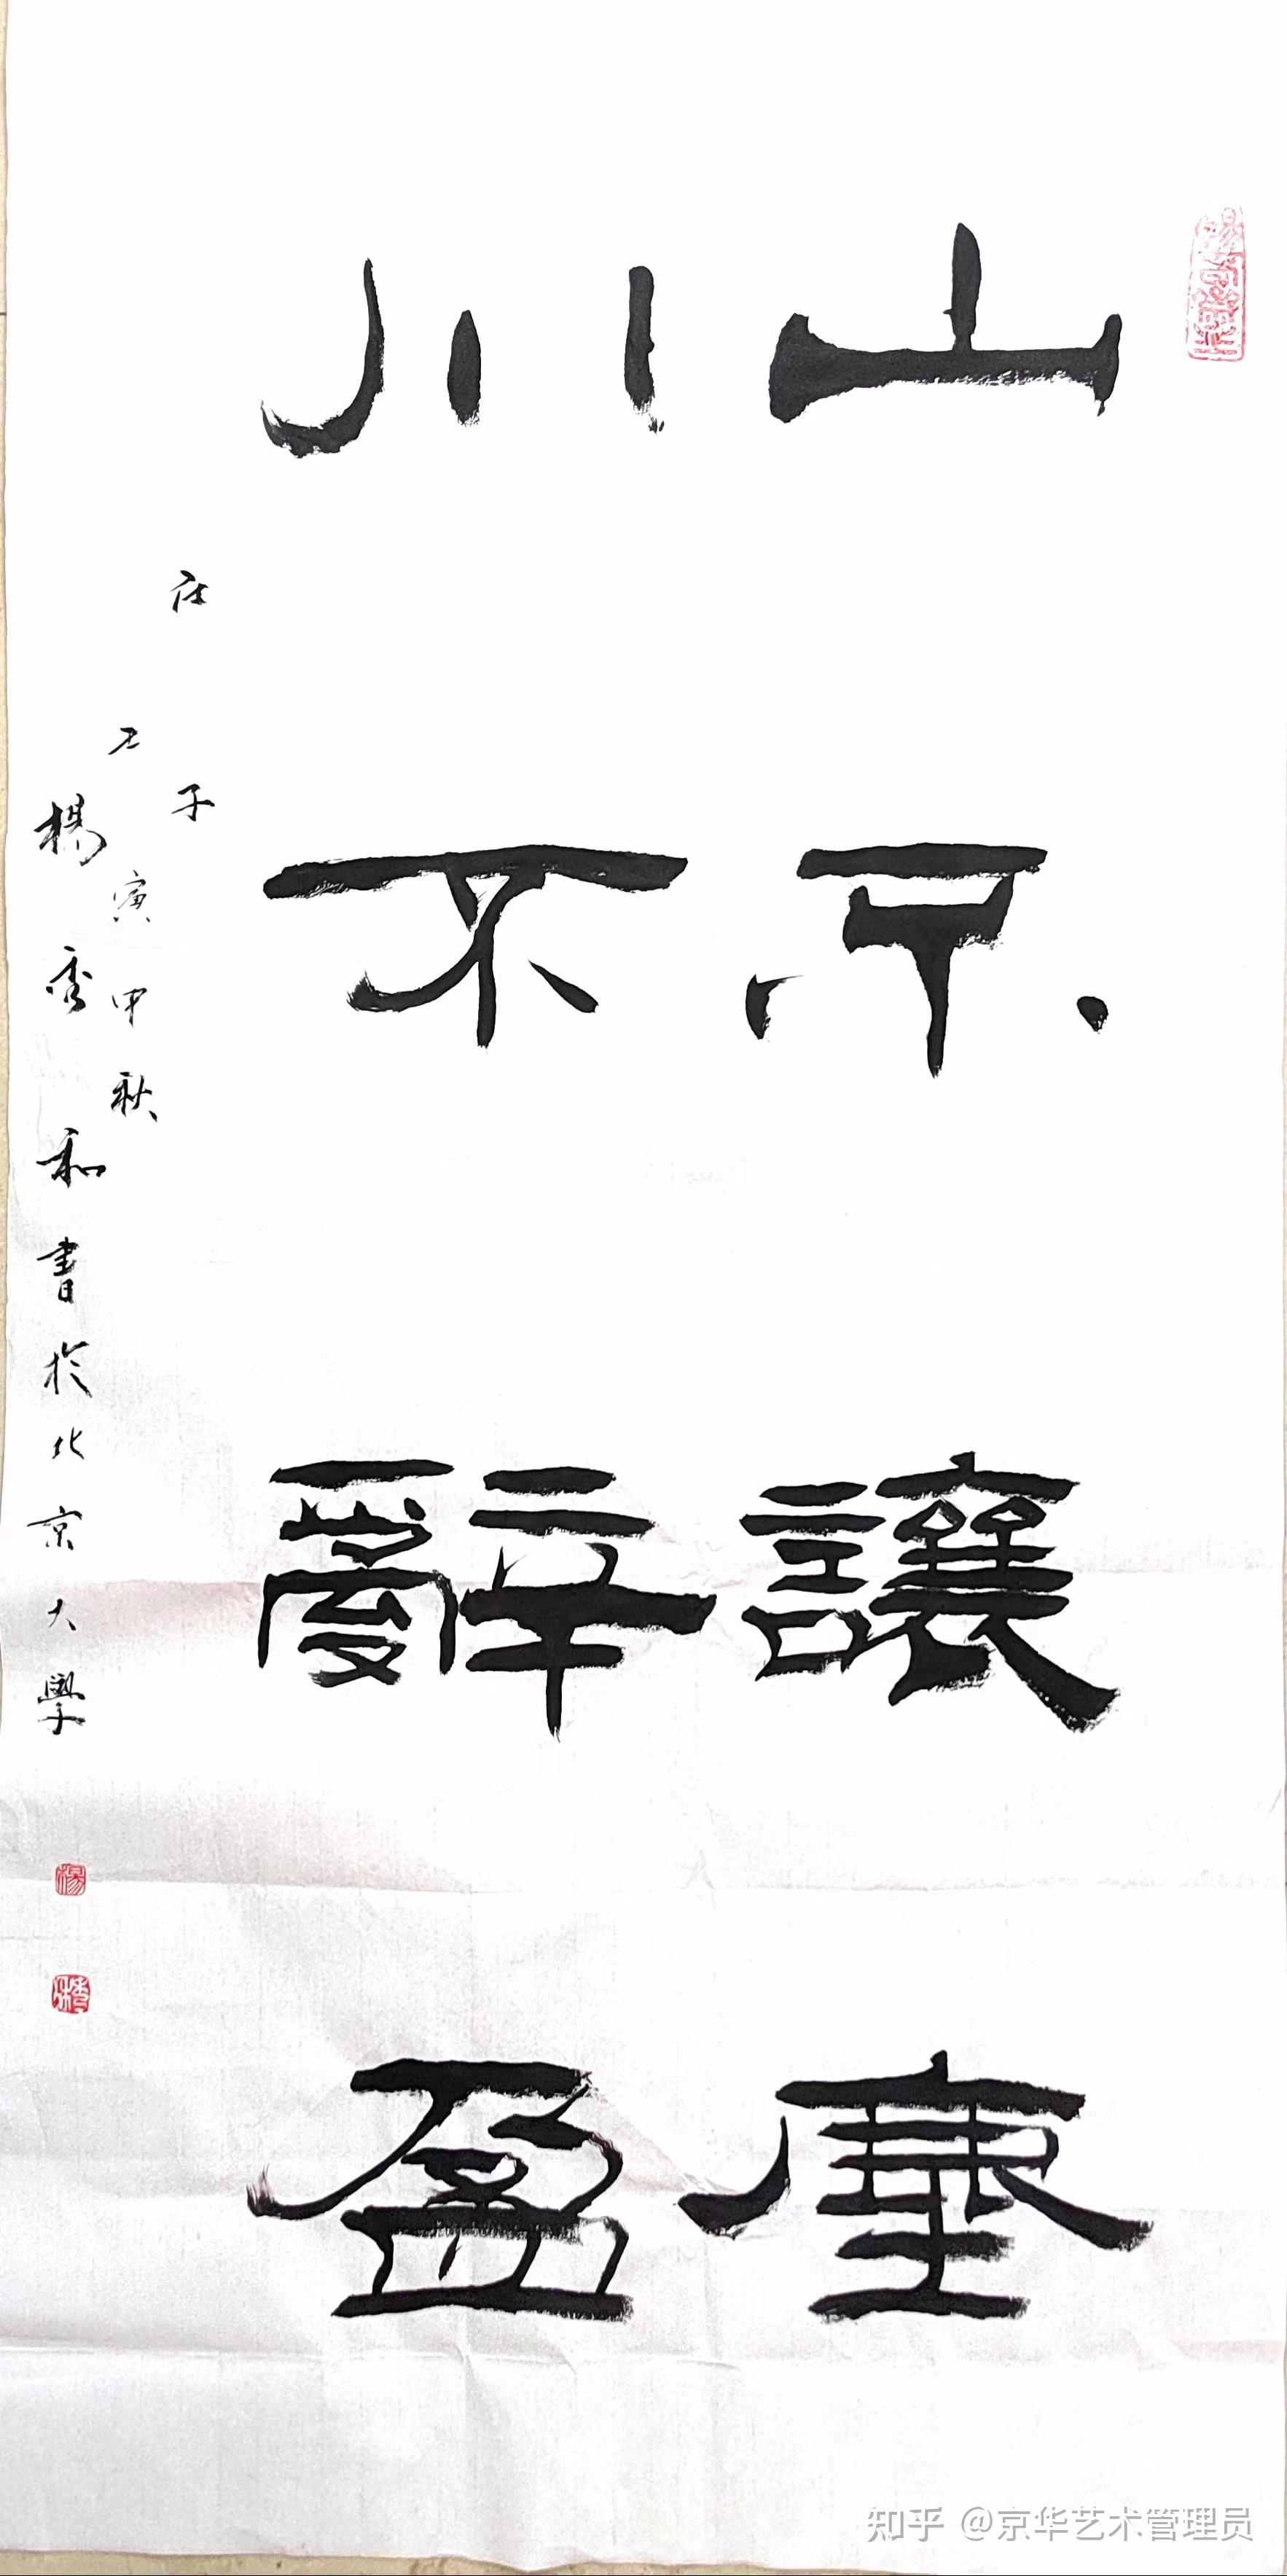 山不讓塵
川不辭盈
庄子
壬寅中秋
楊秀和書於北京大學
楊
知乎 @京华艺术管理员